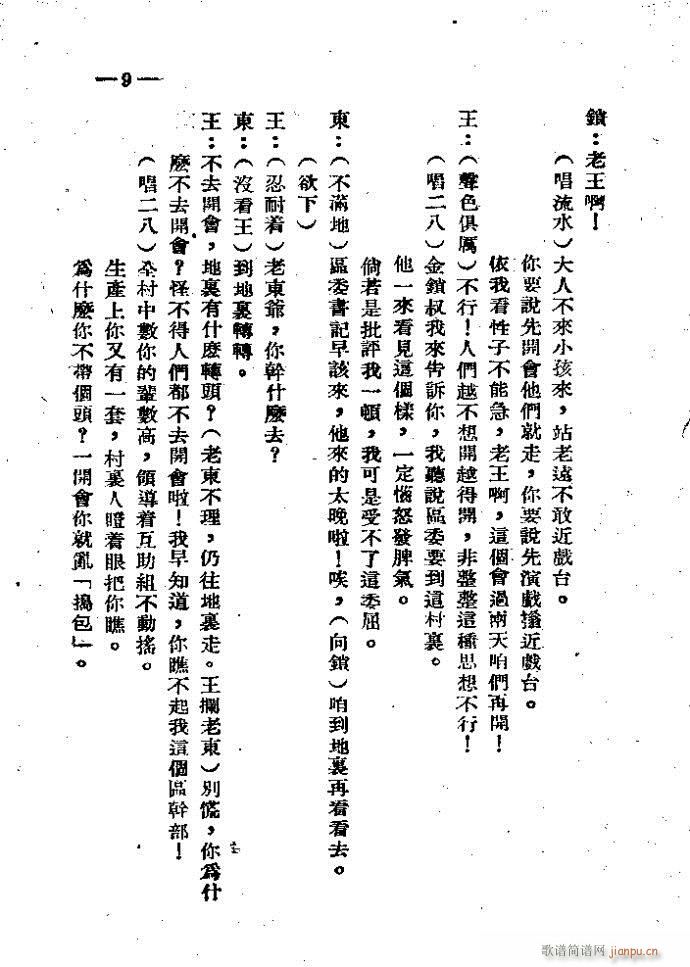 —9—
鎖：老王啊！
（唱流水）大人不來小孩來，站老遠不敢近戲台。
你要說先開會他們就走，你要說先演戲擋近戲台。
依我看性子不能急，老王啊，這個會過兩天咱們再開！
王：（聲色俱厲）不行！人們越不想開越得開，非整整這種思想不行！
（唱二八）金鎖叔我來告訴你，我聽說區委要到這村裏。
他一來看見這個樣，一定惱怒發脾氣。
倘若是批評我一頓，我可是受不了這委屈。
東：（不滿地）區委書記早該來，他來的太晚啦！唉，（向鎖）咱到地裏再看看去。
（欲下）
王：（忍耐着）老東爺，你幹什麽去？
東：（沒看王）到地裏轉轉。
王：不去開會，地裏有什麽轉頭？（老東不理，仍往地裏走。王攔老東）別慌，你爲什
麽不去開會？怪不得人們都不去開會啦！我早知道，你瞧不起我這個區幹部！
（唱二八）全村中數你的輩數高，領導着互助組不動搖。
生產上你又有一套，村裏人瞪着眼把你瞧。
爲什麽你不帶個頭？一開會你就亂「搗包」。
歌谱简谱网
jianpu.cn